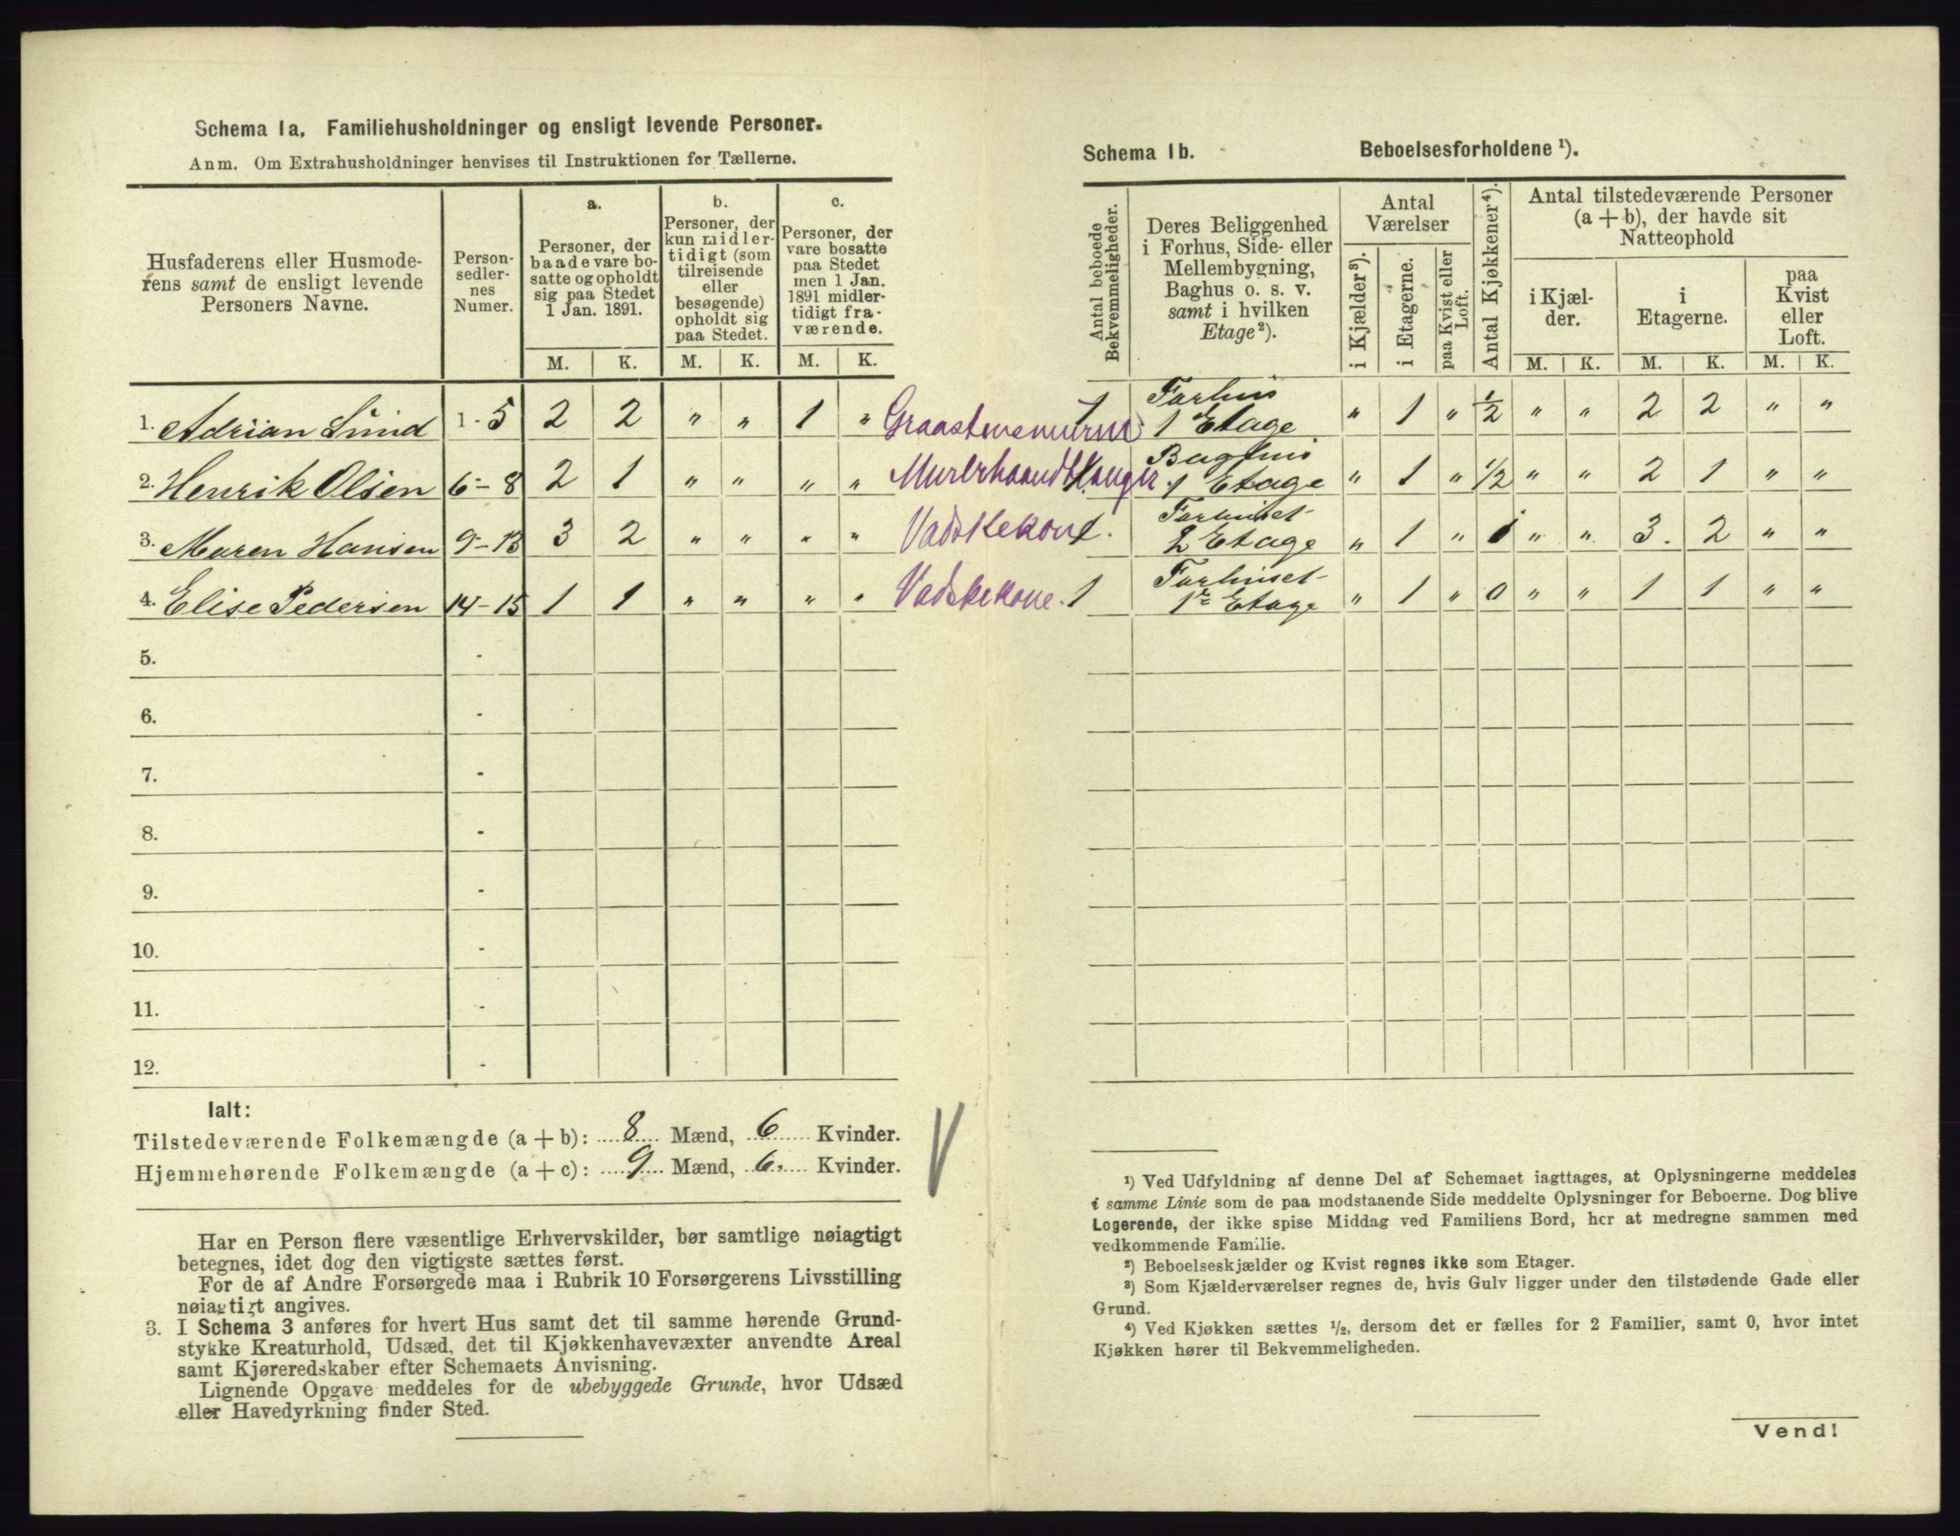 Schema 1a. Familiehusholdninger og ensligt levende Personer.
Anm. Om Extrahusholdninger henvises til Instruktionen for Tællerne.
Husfaderens eller Husmode-
rens samt de ensligt levende
Personers Navne.
Person-
sedler-
nes
Numer.
a.
Personer, der
baade vare bo-
satte og opholdt
sig paa Stedet
1 Jan. 1891.
b.
Personer, der
kun midler-
tidigt (som
tilreisende
eller
besøgende)
opholdt sig
paa Stedet.
c.
Personer, der
vare bosatte
paa Stedet
men 1 Jan.
1891 midler-
tidigt fra-
værende.
M. K. M. K. M. K.
1. Adrian Lund 1 - 5 2 2 " " 1 " Graastensmurer
2. Henrik Olsen 6 - 8 2 1 " " " " Murerhaandtlanger.
3. Maren Hansen 9 - 13 3 2 " " " " Vadskekone.
4. Elise Pedersen 14 - 15 1 1 " " " " Vadskekone.
5. -
6. -
7. -
8. -
9. -
10. -
11. -
12. -
Ialt:
Tilstedeværende Folkemængde (a + b): 8 Mænd, 6 Kvinder.
Hjemmehørende Folkemængde (a + c): 9 Mænd, 6. Kvinder.
Har en Person flere væsentlige Erhvervskilder, bør samtlige nøiagtigt
betegnes, idet dog den vigtigste sættes først.
For de af Andre Forsørgede maa i Rubrik 10 Forsørgerens Livsstilling
nøiagtigt angives.
3. I Schema 3 anføres for hvert Hus samt det til samme hørende Grund-
stykke Kreaturhold, Udsæd, det til Kjøkkenhavevæxter anvendte Areal
samt Kjøreredskaber efter Schemaets Anvisning.
Lignende Opgave meddeles for de ubebyggede Grunde, hvor Udsæd
eller Havedyrkning finder Sted.
Schema 1b. Beboelsesforholdene ¹).
Antal beboede
Bekvemmeligheder.
Deres Beliggenhed
i Forhus, Side- eller
Mellembygning,
Baghus o. s. v.
samt i hvilken
Etage²).
Antal
Værelser
i Kjælder³).
i Etagerne.
paa Kvist eller
Loft.
Antal Kjøkkener⁴).
Antal tilstedeværende Personer
(a + b), der havde sit
Natteophold
i Kjæl-
der.
i
Etagerne.
paa
Kvist
eller
Loft.
M. K. M. K. M. K.
1 Forhus
1 Etage " 1 " 1/2 " " 2 2 " "
1 Baghus
1 Etage " 1 " 1/2 " " 2 1 " "
1 Forhuset
2 Etage " 1 " 1 " " 3. 2 " "
1 Forhuset
1re Etage " 1 " 0 " " 1 1 " "
¹) Ved Udfyldning af denne Del af Schemaet iagttages, at Oplysningerne meddeles
i samme Linie som de paa modstaaende Side meddelte Oplysninger for Beboerne. Dog blive
Logerende, der ikke spise Middag ved Familiens Bord, her at medregne sammen med
vedkommende Familie.
²) Beboelseskjælder og Kvist regnes ikke som Etager.
³) Som Kjælderværelser regnes de, hvis Gulv ligger under den tilstødende Gade eller
Grund.
⁴) Ved Kjøkken sættes 1/2, dersom det er fælles for 2 Familier, samt 0, hvor intet
Kjøkken hører til Bekvemmeligheden.
Vend!